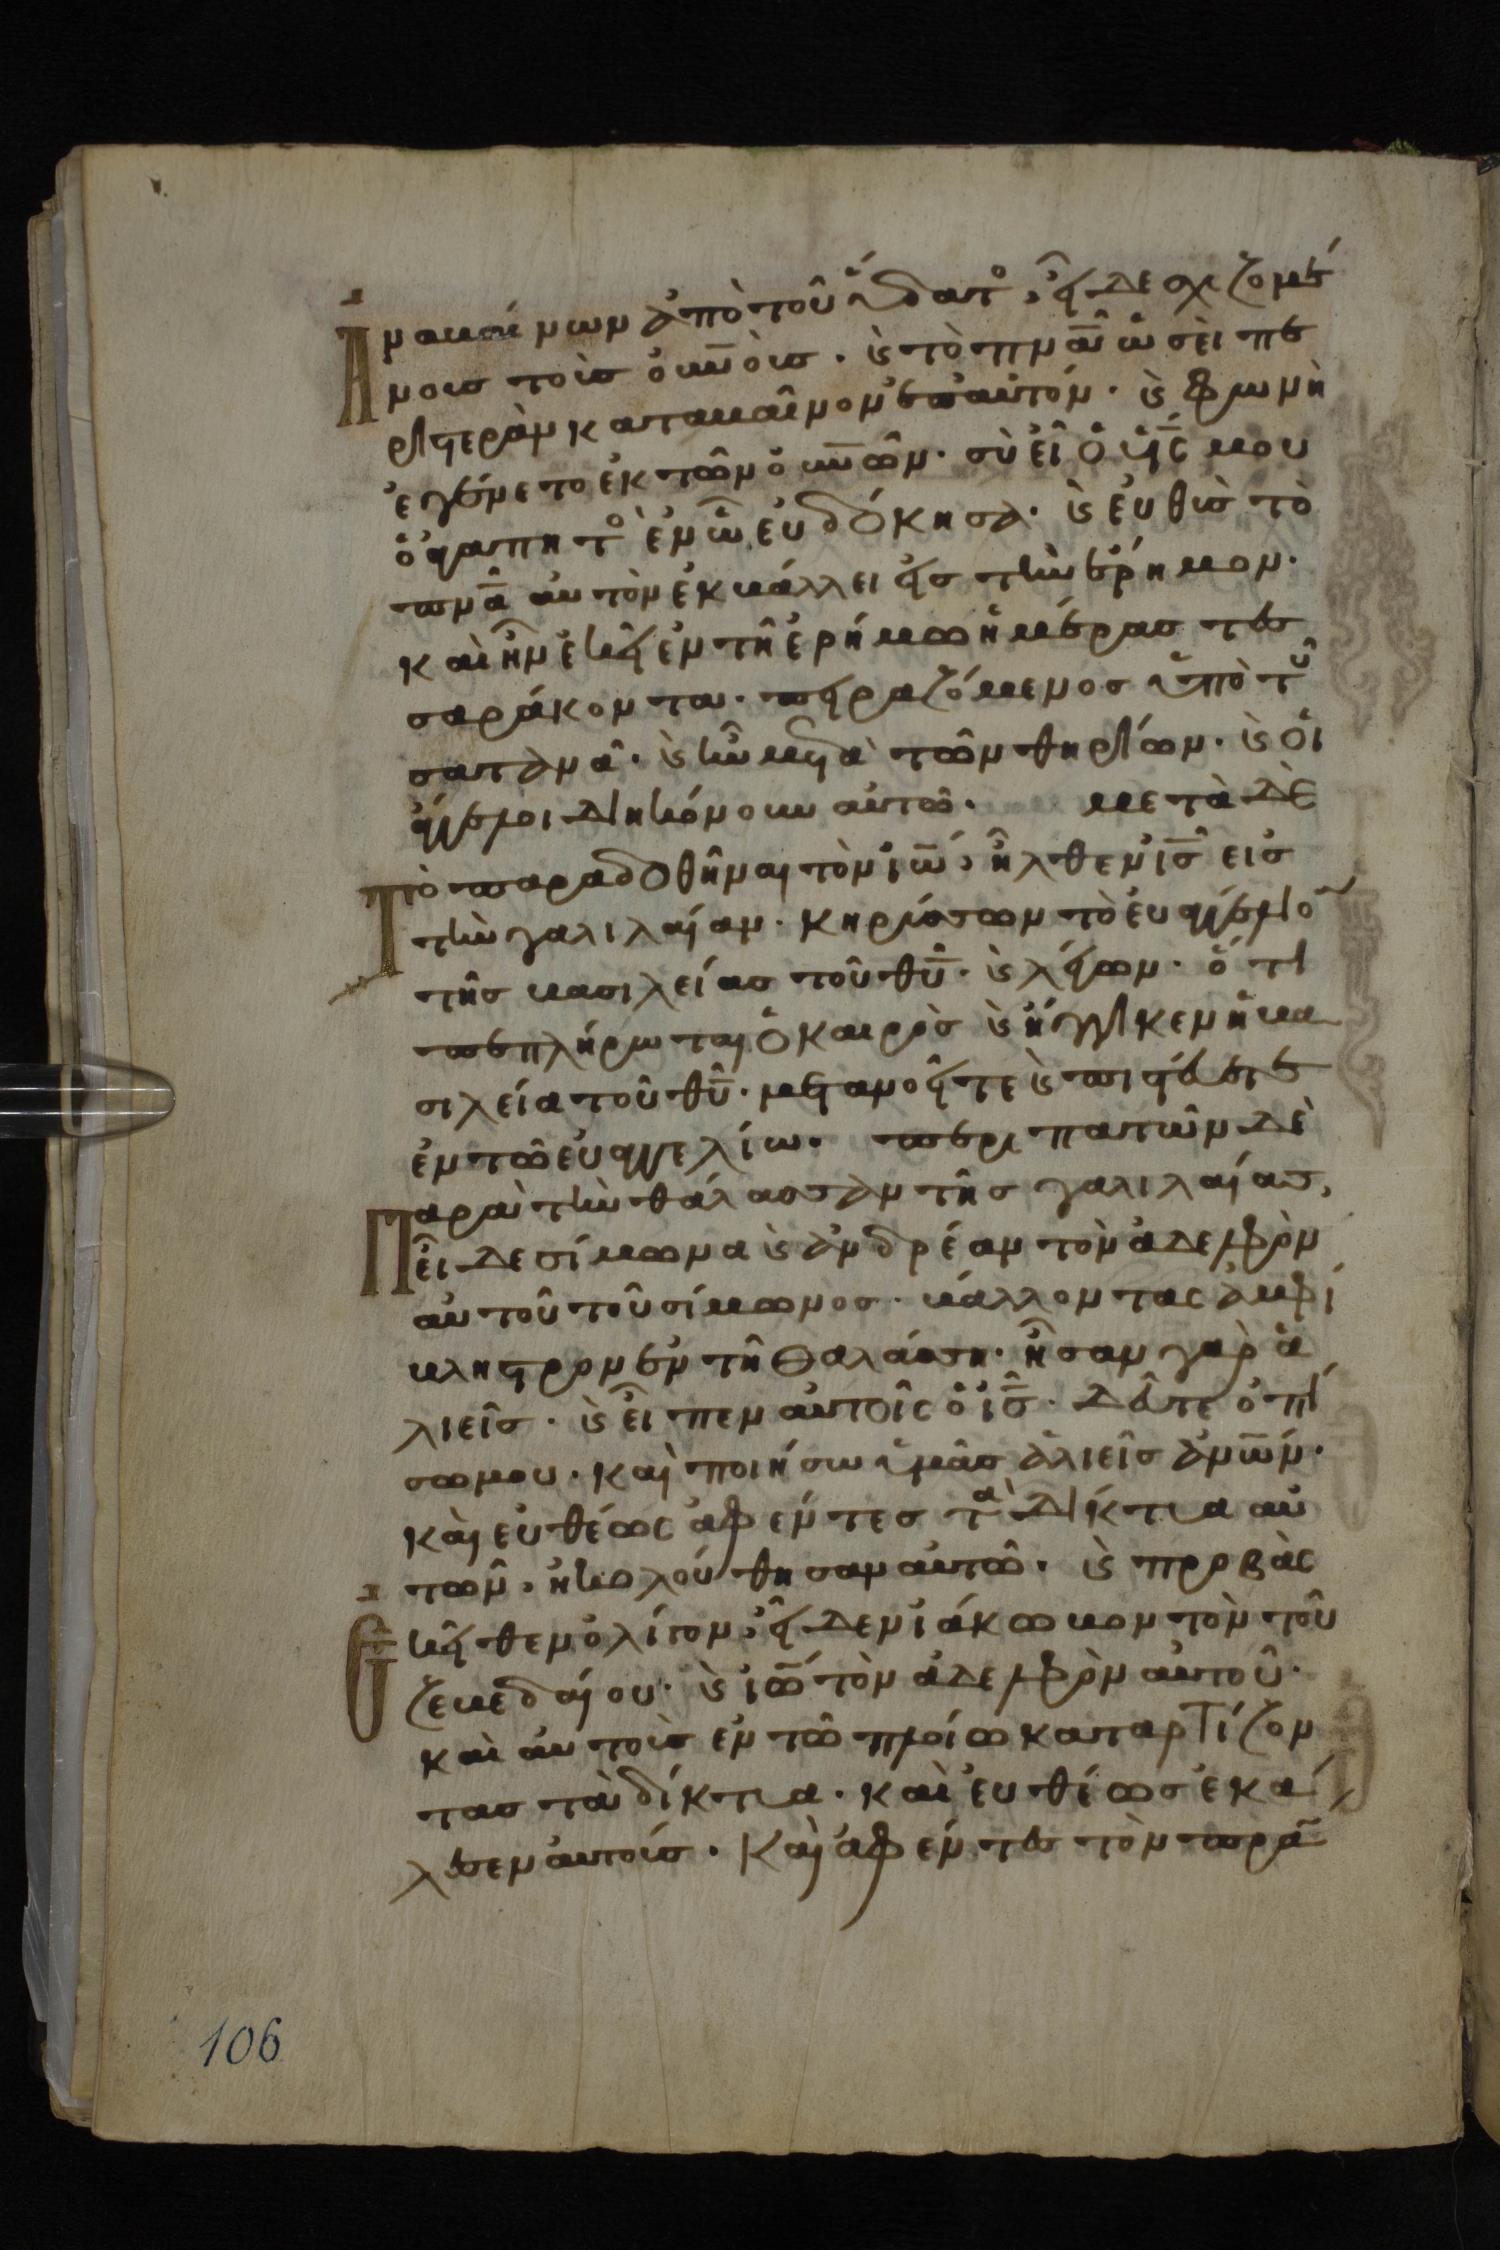 Ἀναβαίνων ἀπὸ τοῦ ὕδατο, εἶδε σχιζομέ
νους τοὺς οὐνοὺς. καὶ τὸ πνᾶ ὡσεὶ πε
ριστερὰν καταβαῖνον ἐπ αὐτόν. καὶ φωνὴ
ἐγένετο ἐκ τῶν οὐνῶν. σὺ εἶ ὁ υἱς μου
ὁ ἀγαπητο ἐν ὧ εὐδόκησα. καὶ εὐθὺς τὸ
πνᾶ αὐτὸν ἐκβάλλει εἰς τὴν ἔρημον.
καὶ ἦν ἐκεῖ ἐν τῆ ἐρήμω ἡμέρας τεσ
σαράκοντα. πειραζόμενος ὑπὸ τοῦ
σατανᾶ. καὶ ἦν μετὰ τῶν θηρίων. καὶ οἱ
ἄγγελοι διηκόνουν αὐτῶ. μετὰ δὲ
Τὸ παραδοθῆναι τὸν ἰω, ἦλθεν ις εἰς
τὴν γαλιλαίαν. κηρύσσων τὸ εὐαγγέλιο
τῆς βασιλείας τοῦ θυ. καὶ λέγων. ὅτι
πεπλήρωται ὁ καιρὸς καὶ ἤγγικεν ἡ βα
σιλεία τοῦ θυ. μετανοεῖτε καὶ πιστεύετε
ἐν τῶ εὐαγγελίω. περιπατῶν δὲ
Παρὰ τὴν θάλασσαν τῆς γαλιλαίας,
εἶδε σίμωνα καὶ ἀνδρέαν τὸν ἀδελφὸν
αὐτοῦ τοῦ σίμωνος. βάλλοντας ἀμφί
βληστρον ἐν τῆ θαλάσση. ἦσαν γὰρ ἁ
λιεῖς. καὶ εἶπεν αὐτοῖς ὁ ις. δεῦτε ὀπί
σω μου. καὶ ποιήσω ὑμᾶς ἁλιεῖς ἀνων.
καὶ εὐθέως ἀφέντες τὰ δίκτυα αὐ
τῶν, ἠκολούθησαν αὐτῶ. καὶ προβὰς
Ἐκεῖθεν ὀλίγον, εἶδεν ἰάκωβον τὸν τοῦ
ζεβεδαίου. καὶ ἰω τὸν ἀδελφὸν αὐτοῦ.
καὶ αὐτοὺς ἐν τῶ πλοίω καταρτίζον
τας τὰ δίκτυα. καὶ εὐθέως ἐκά
λεσεν αὐτούς. καὶ ἀφέντες τὸν πρα
106